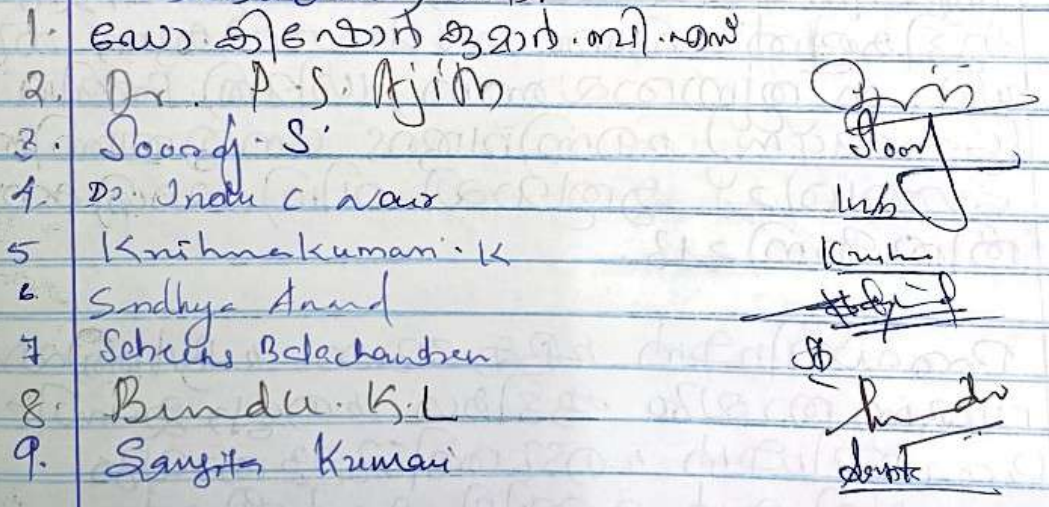 1. ഡോ. കിഷോർ കുമാർ. ബി. എസ്
2. Dr. P. S. Ajith
3. Sooraj. S Sooraj
4. Dr. Indu C Nair Indu
5 Krishnakumari. K
6. Sandhya Anand
7 Sabeena Balachandran
8. Bindu. K. L Bindu
9. Sangita Kumari